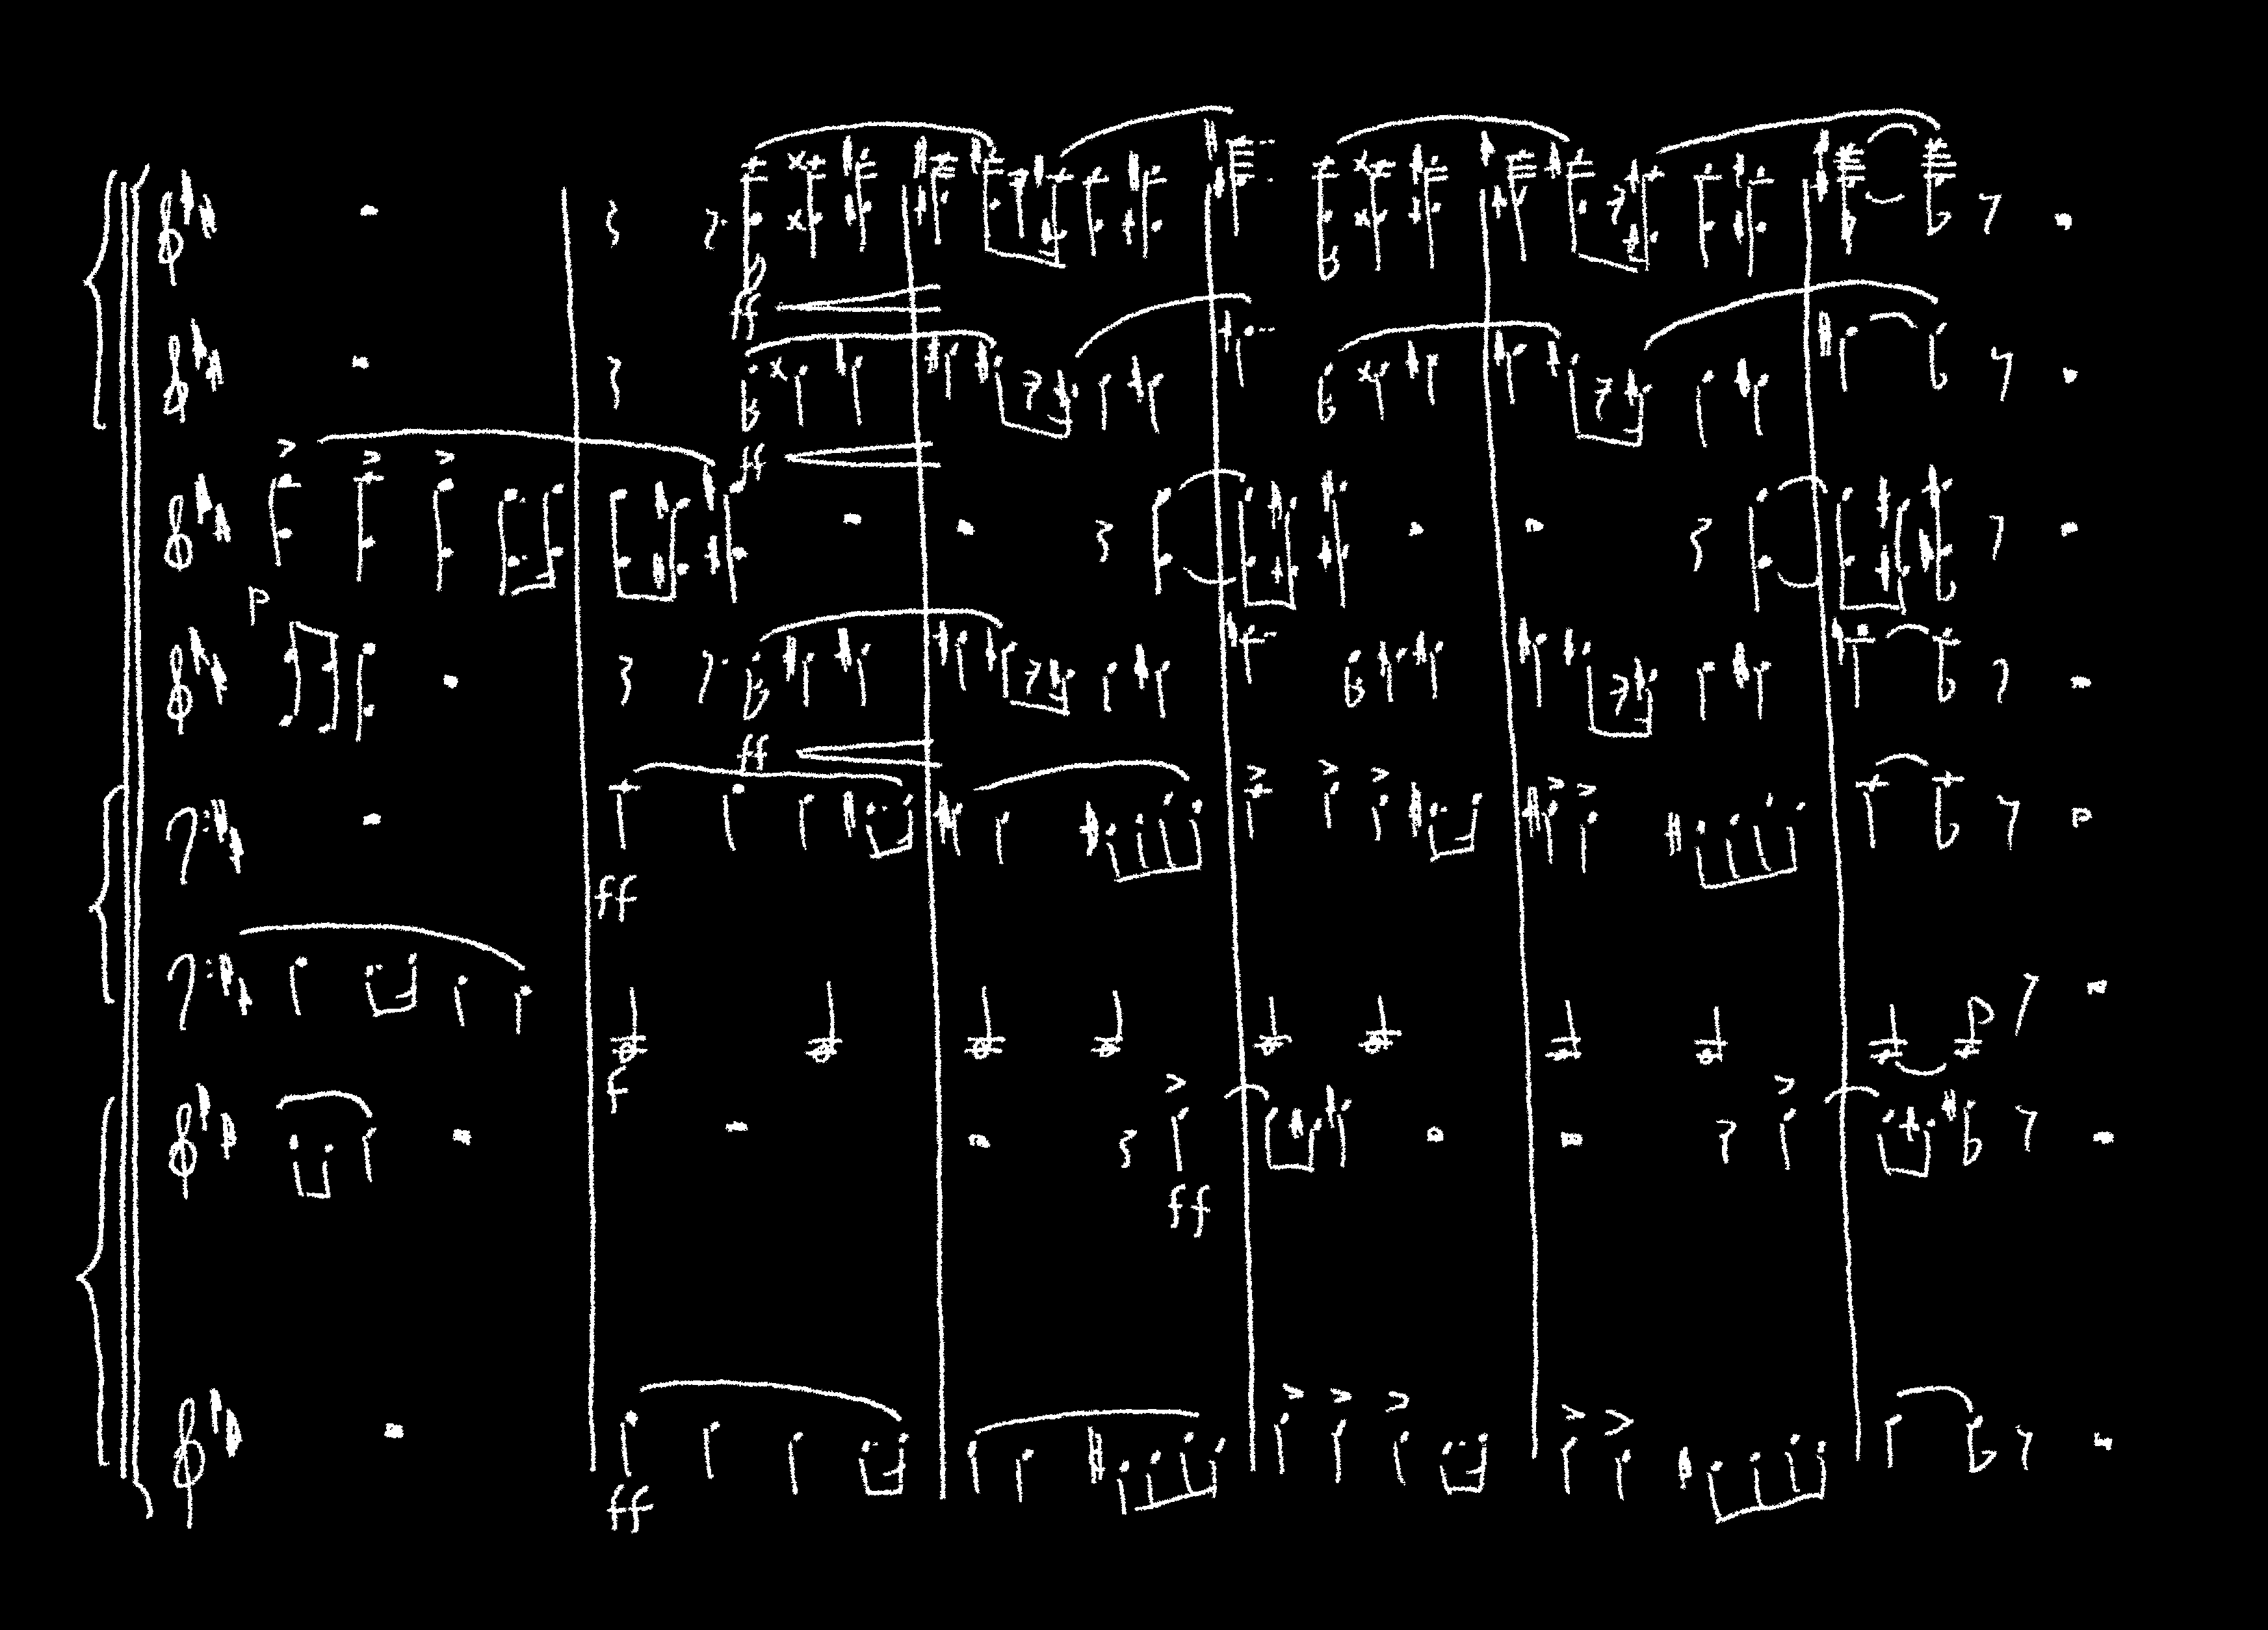 ff
ff
p
ff
ff
f
ff
ff